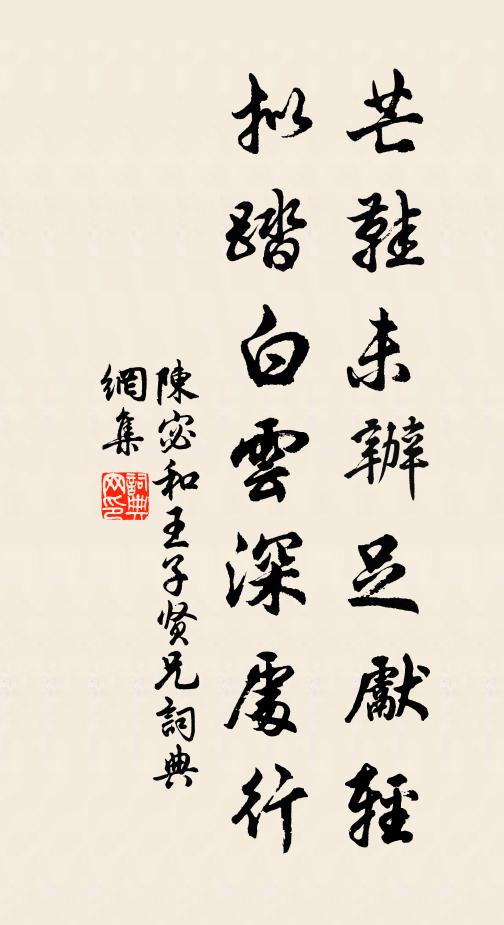 芒鞋未辦足獻輕
擬踏白雲深處行
陳宓和王子賢兄詞典
網集
詞典
网印